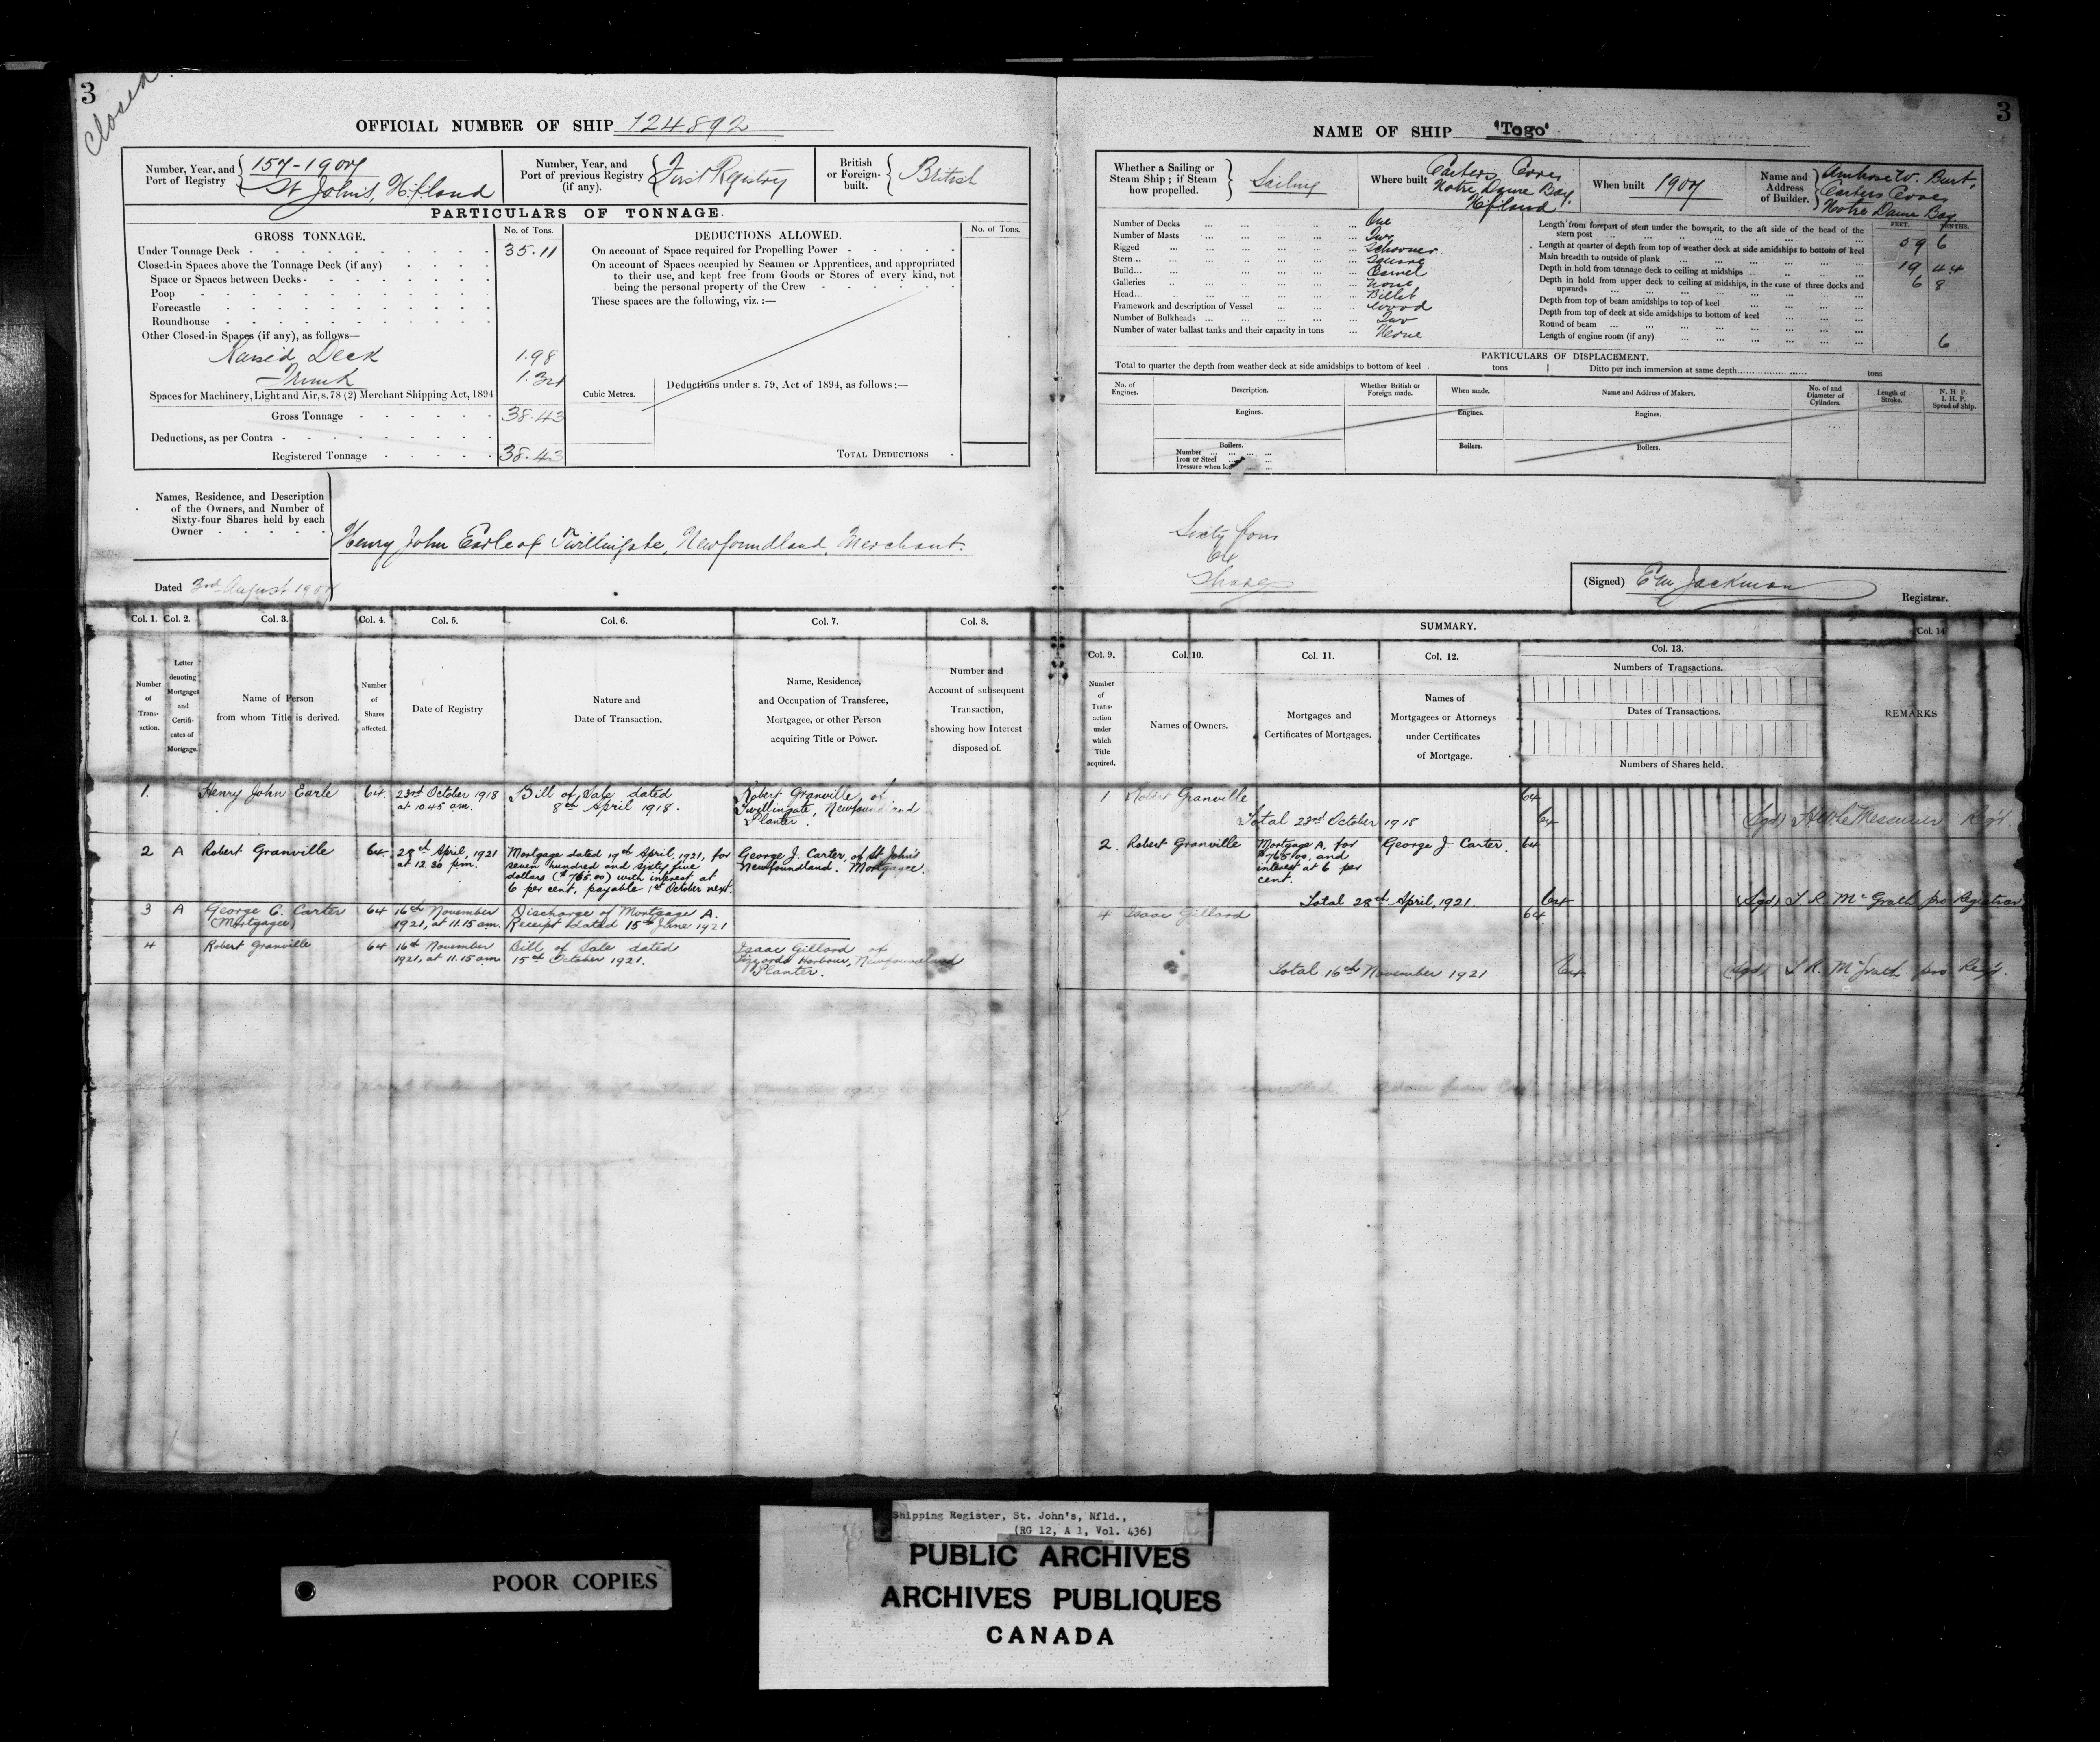 3
Closed.
OFFICIAL NUMBER OF SHIP 124.892
Number, Year, and Port of Registry
157-1907
St John's, Nfland
Number, Year, and Port of previous Registry (if any).
First Registry
British or Foreign-built.
British
PARTICULARS OF TONNAGE.
GROSS TONNAGE.
No. of Tons.
Under Tonnage Deck - 35.11
Closed-in Spaces above the Tonnage Deck (if any)
Space or Spaces between Decks -
Poop
Forecastle
Roundhouse
Other Closed-in Spaces (if any), as follows—
Raised Deck 1.98
Trunk 1.34
Spaces for Machinery, Light and Air, s. 78 (2) Merchant Shipping Act, 1894
Gross Tonnage 38.43
Deductions, as per Contra -
Registered Tonnage 38.43
Cubic Metres.
DEDUCTIONS ALLOWED.
No. of Tons.
On account of Space required for Propelling Power
On account of Spaces occupied by Seamen or Apprentices, and appropriated
to their use, and kept free from Goods or Stores of every kind, not
being the personal property of the Crew
These spaces are the following, viz. :—
Deductions under s. 79, Act of 1894, as follows :—
TOTAL DEDUCTIONS
Names, Residence, and Description
of the Owners, and Number of
Sixty-four Shares held by each
Owner
Henry John Earle of Twillingate, Newfoundland, Merchant.
Dated 3rd August 1907
Col. 1.
Number of Transaction.
Col. 2.
Letter denoting Mortgages and Certificates of Mortgage.
Col. 3.
Name of Person
from whom Title is derived.
Col. 4.
Number of Shares affected.
Col. 5.
Date of Registry
Col. 6.
Nature and
Date of Transaction.
Col. 7.
Name, Residence,
and Occupation of Transferee,
Mortgagee, or other Person
acquiring Title or Power.
Col. 8.
Number and
Account of subsequent
Transaction,
showing how Interest
disposed of.
1. Henry John Earle 64 23rd October 1918 at 10.45 am. Bill of Sale dated 8th April 1918. Robert Granville of Twillingate, Newfoundland Planter.
2 A Robert Granville 64 28th April, 1921 at 12.20 p.m. Mortgage dated 19th April, 1921, for seven hundred and sixty five dollars ($765.00) with interest at 6 per cent, payable 1st October next. George J. Carter, of St John's Newfoundland. Mortgagee.
3 A George C. Carter (Mortgagee) 64 16th November 1921, at 11.15 am. Discharge of Mortgage A. Receipt dated 15th June 1921
4 Robert Granville 64 16th November 1921, at 11.15 am Bill of Sale dated 15th October 1921. Isaac Gillard of Harbour, Newfoundland Planter.
3
NAME OF SHIP "Togo"
Whether a Sailing or Steam Ship ; if Steam how propelled.
Sailing
Where built
Carters Cove,
Notre Dame Bay.
Nfland
When built 1907
Name and Address of Builder.
Ambrose W. Burt,
Carters Cove,
Notre Dame Bay
Number of Decks One
Number of Masts Two
Rigged Schooner
Stern... Square
Build... Carvel
Galleries None
Head... Billet
Framework and description of Vessel Wood
Number of Bulkheads Two
Number of water ballast tanks and their capacity in tons None
FEET. TENTHS.
Length from forepart of stem under the bowsprit, to the aft side of the head of the stern post 59 6
Length at quarter of depth from top of weather deck at side amidships to bottom of keel
Main breadth to outside of plank 19 44
Depth in hold from tonnage deck to ceiling at midships 6 8
Depth in hold from upper deck to ceiling at midships, in the case of three decks and upwards
Depth from top of beam amidships to top of keel
Depth from top of deck at side amidships to bottom of keel
Round of beam
Length of engine room (if any) 6
PARTICULARS OF DISPLACEMENT.
Total to quarter the depth from weather deck at side amidships to bottom of keel tons
Ditto per inch immersion at same depth tons
No. of Engines.
Description.
Whether British or Foreign made.
When made.
Name and Address of Makers.
No. of and Diameter of Cylinders.
Length of Stroke.
N. H. P.
I. H. P.
Speed of Ship.
Engines. Engines. Engines.
Boilers. Boilers. Boilers.
Number
Iron or Steel
Pressure when
Sixty four
64
Shares
(Signed) E M Jackman
Registrar.
SUMMARY.
Col. 9.
Number of Transaction under which Title acquired.
Col. 10.
Names of Owners.
Col. 11.
Mortgages and
Certificates of Mortgages.
Col. 12.
Names of
Mortgagees or Attorneys
under Certificates
of Mortgage.
Col. 13.
Numbers of Transactions.
Dates of Transactions.
Numbers of Shares held.
Col. 14
REMARKS
1 Robert Granville 64
Total 23rd October 1918 64 (Sgd) H W LeMessurier Regr.
2. Robert Granville Mortgage A. for $765.00, and interest at 6 per cent. George J. Carter. 64
Total 28th April, 1921. 64 (Sgd) T R McGrath pro Registrar
4 Isaac Gillard 64
Total 16th November 1921 64 (Sgd) T R. McGrath pro Regr.
Shipping Register, St. John's, Nfld.,
(RG 12, A 1, Vol. 436)
PUBLIC ARCHIVES
ARCHIVES PUBLIQUES
CANADA
POOR COPIES